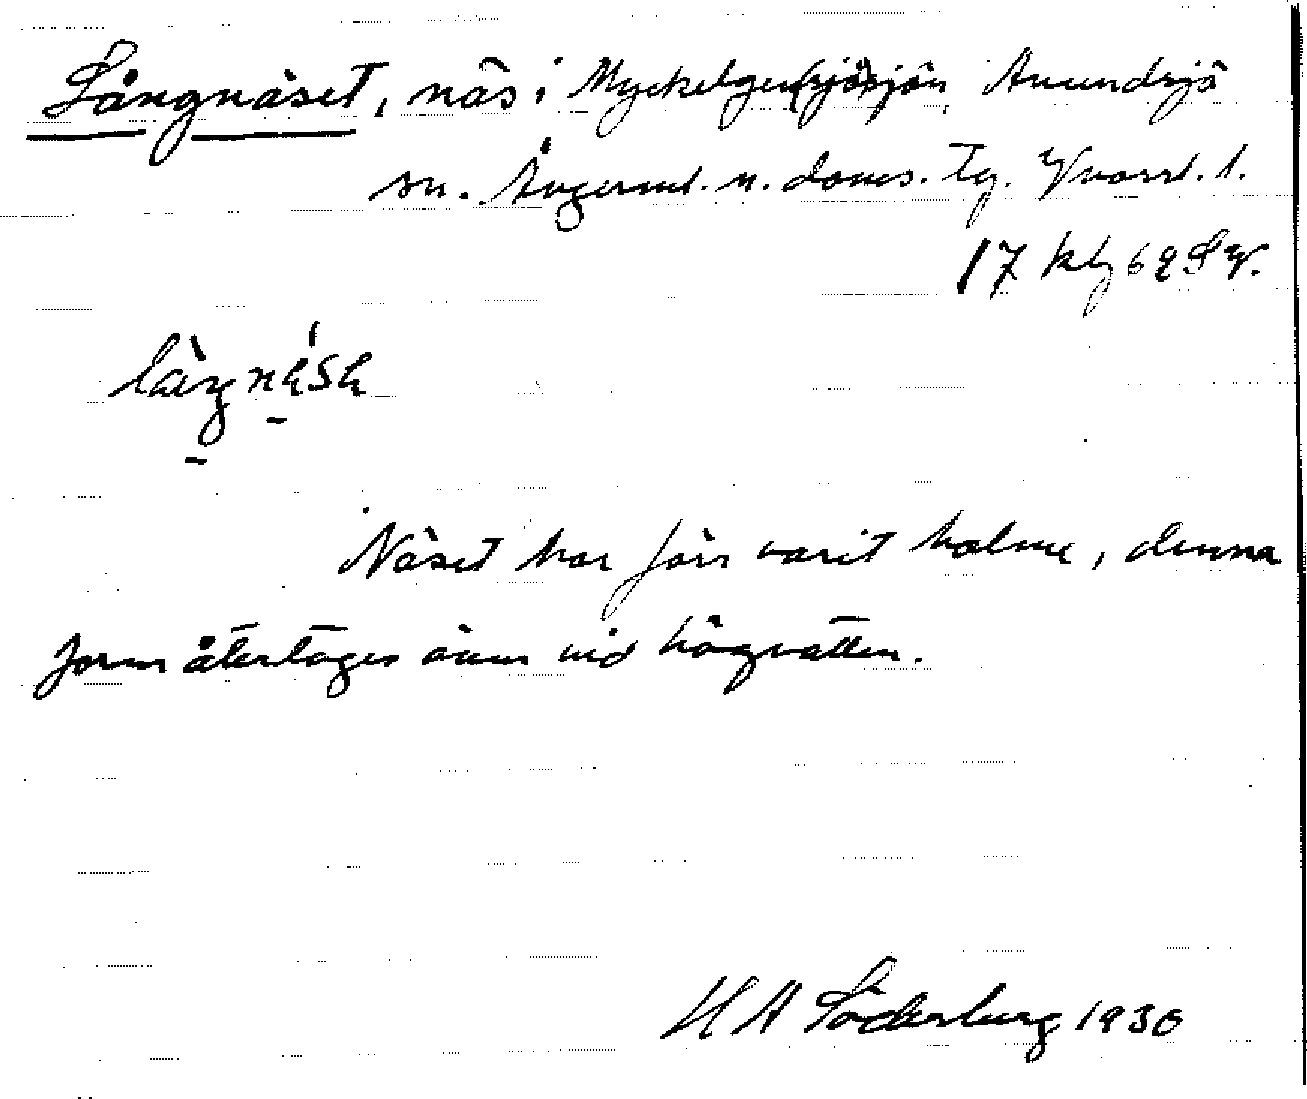 Långnäset, näs i Myckelgensjösjön, Anundsjö
sn. Ångerml. n. doms. Tg. Västrl. l.
17 kbg 69 SV.
Näset har förr varit holme, denna
form återtages även vid högvatten.
H A Söderberg 1930